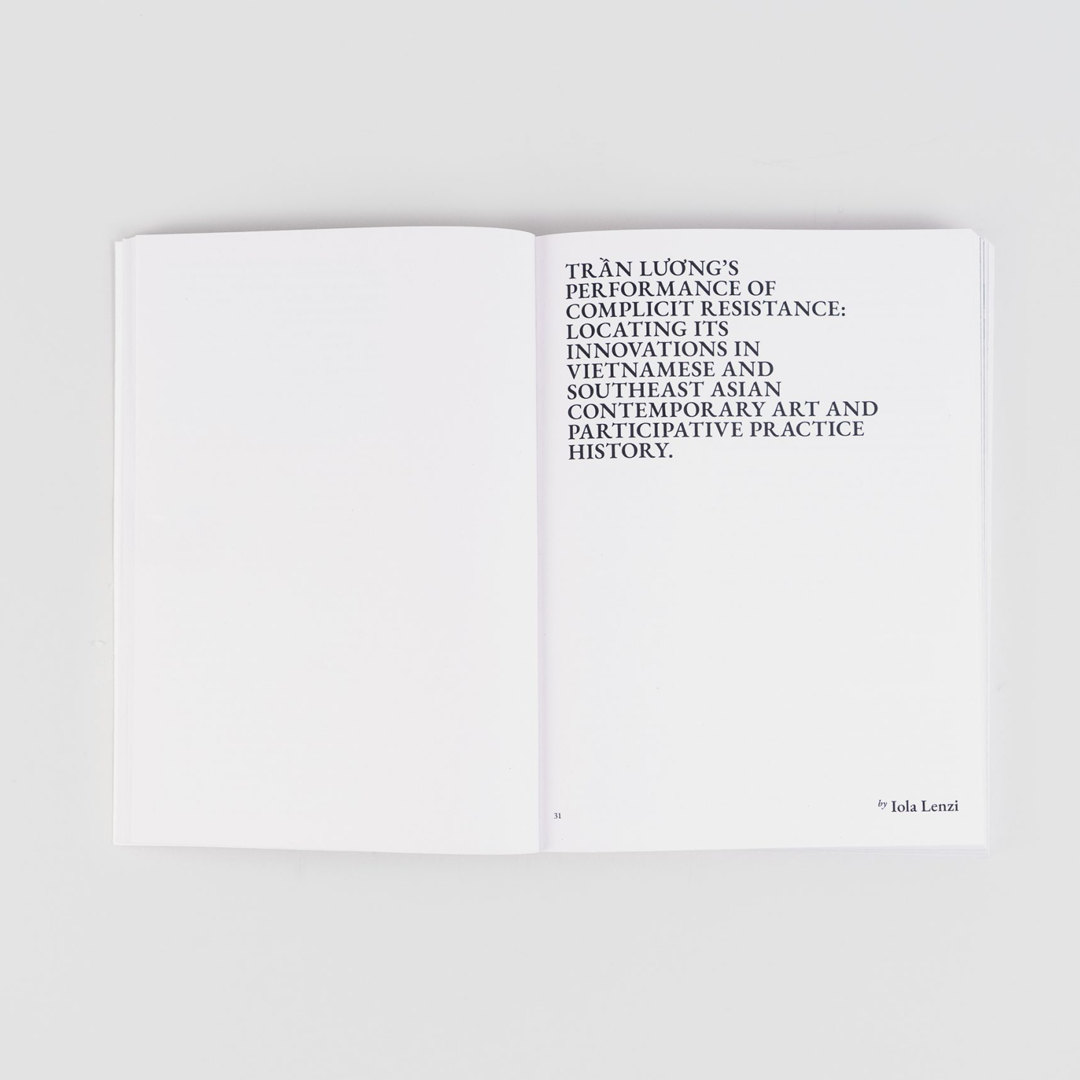 TRẦN LƯƠNG’S
PERFORMANCE OF
COMPLICIT RESISTANCE:
LOCATING ITS
INNOVATIONS IN
VIETNAMESE AND
SOUTHEAST ASIAN
CONTEMPORARY ART AND
PARTICIPATIVE PRACTICE
HISTORY.
by Iola Lenzi
31